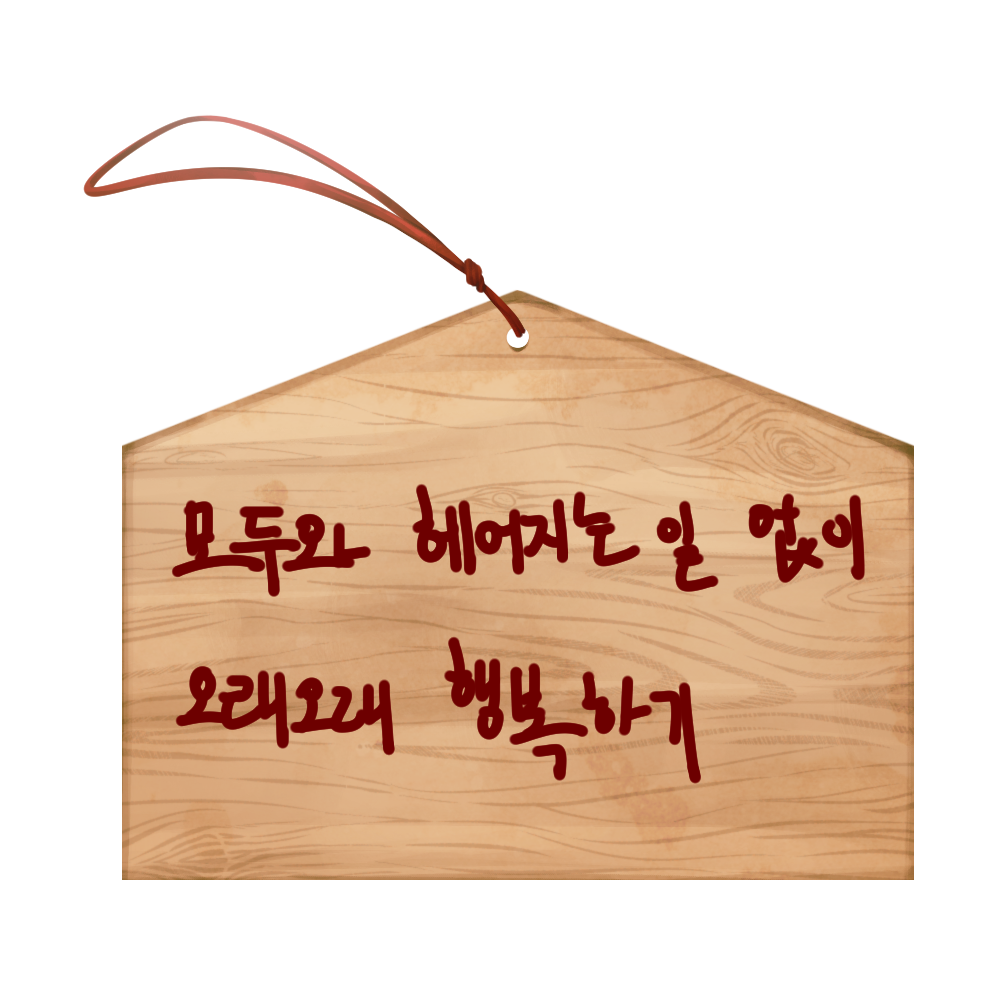 모두와 헤어지는 일 없이
오래오래 행복하기